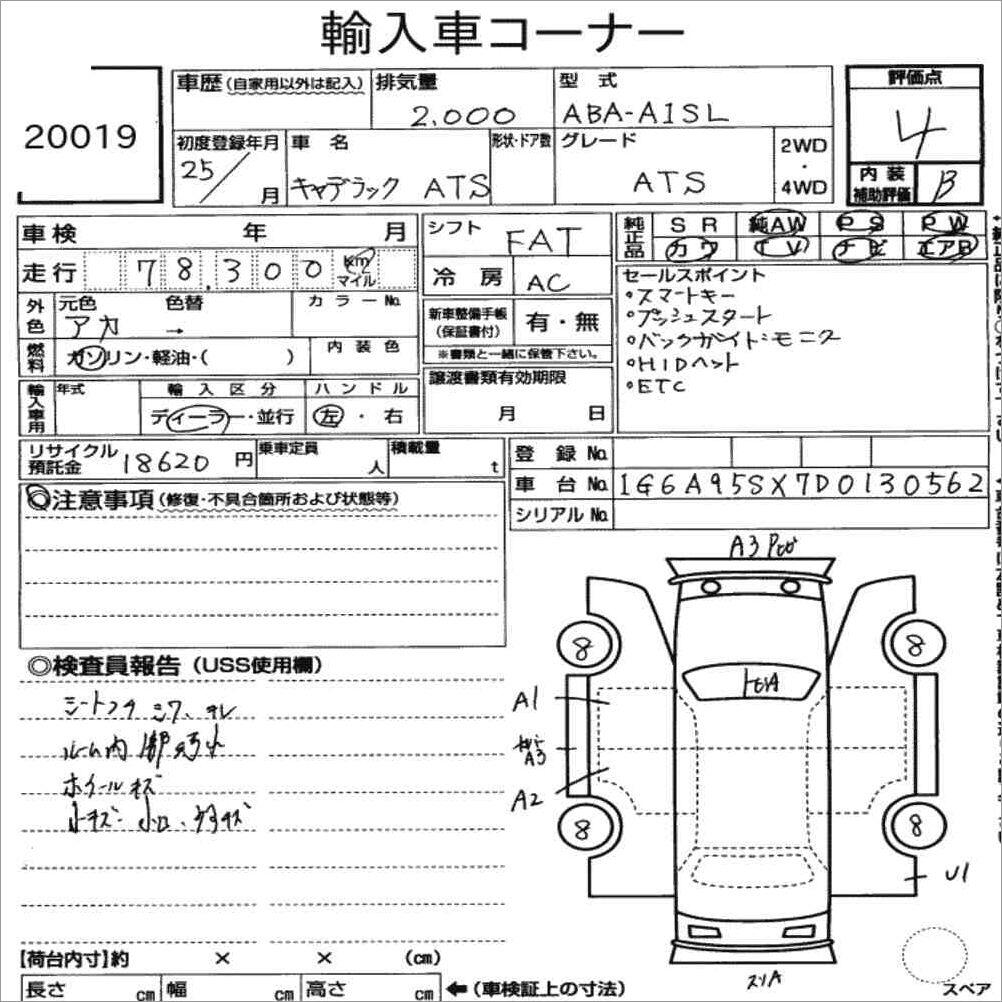 輸入車コーナー
20019
車歴(自家用以外は記入)
排気量
2,000
型式
ABA-A1SL
評価点
4
初度登録年月
25/ 月
車名
キャデラック ATS
形状・ドア数
グレード
ATS
2WD
・
4WD
内装
補助評価
B
車検 年 月
走行 78,300 km マイル
シフト
FAT
冷房
AC
純正品
SR 純AW PS PW
カワ TV ナビ エアB
外色
元色 色替
アカ →
カラーNo.
燃料
ガソリン・軽油・( )
内装色
新車整備手帳
(保証書付)
有・無
※書類と一緒に保管下さい。
セールスポイント
・スマートキー
・プッシュスタート
・バックガイドモニタ
・HIDヘット
・ETC
輸入車用
年式
輸入区分
ディーラー・並行
ハンドル
左・右
譲渡書類有効期限
月 日
リサイクル
預託金
18620 円
乗車定員
人
積載量
t
登録No.
車台No. 1G6A95SX7D0130562
シリアルNo.
◎注意事項(修復・不具合箇所および状態等)
◎検査員報告(USS使用欄)
ルーム内
ホイールキズ
A3
A1
A3
A2
8
8
8
8
U1
【荷台内寸】約 × × (cm)
長さ cm 幅 cm 高さ cm ←(車検証上の寸法)
スペア